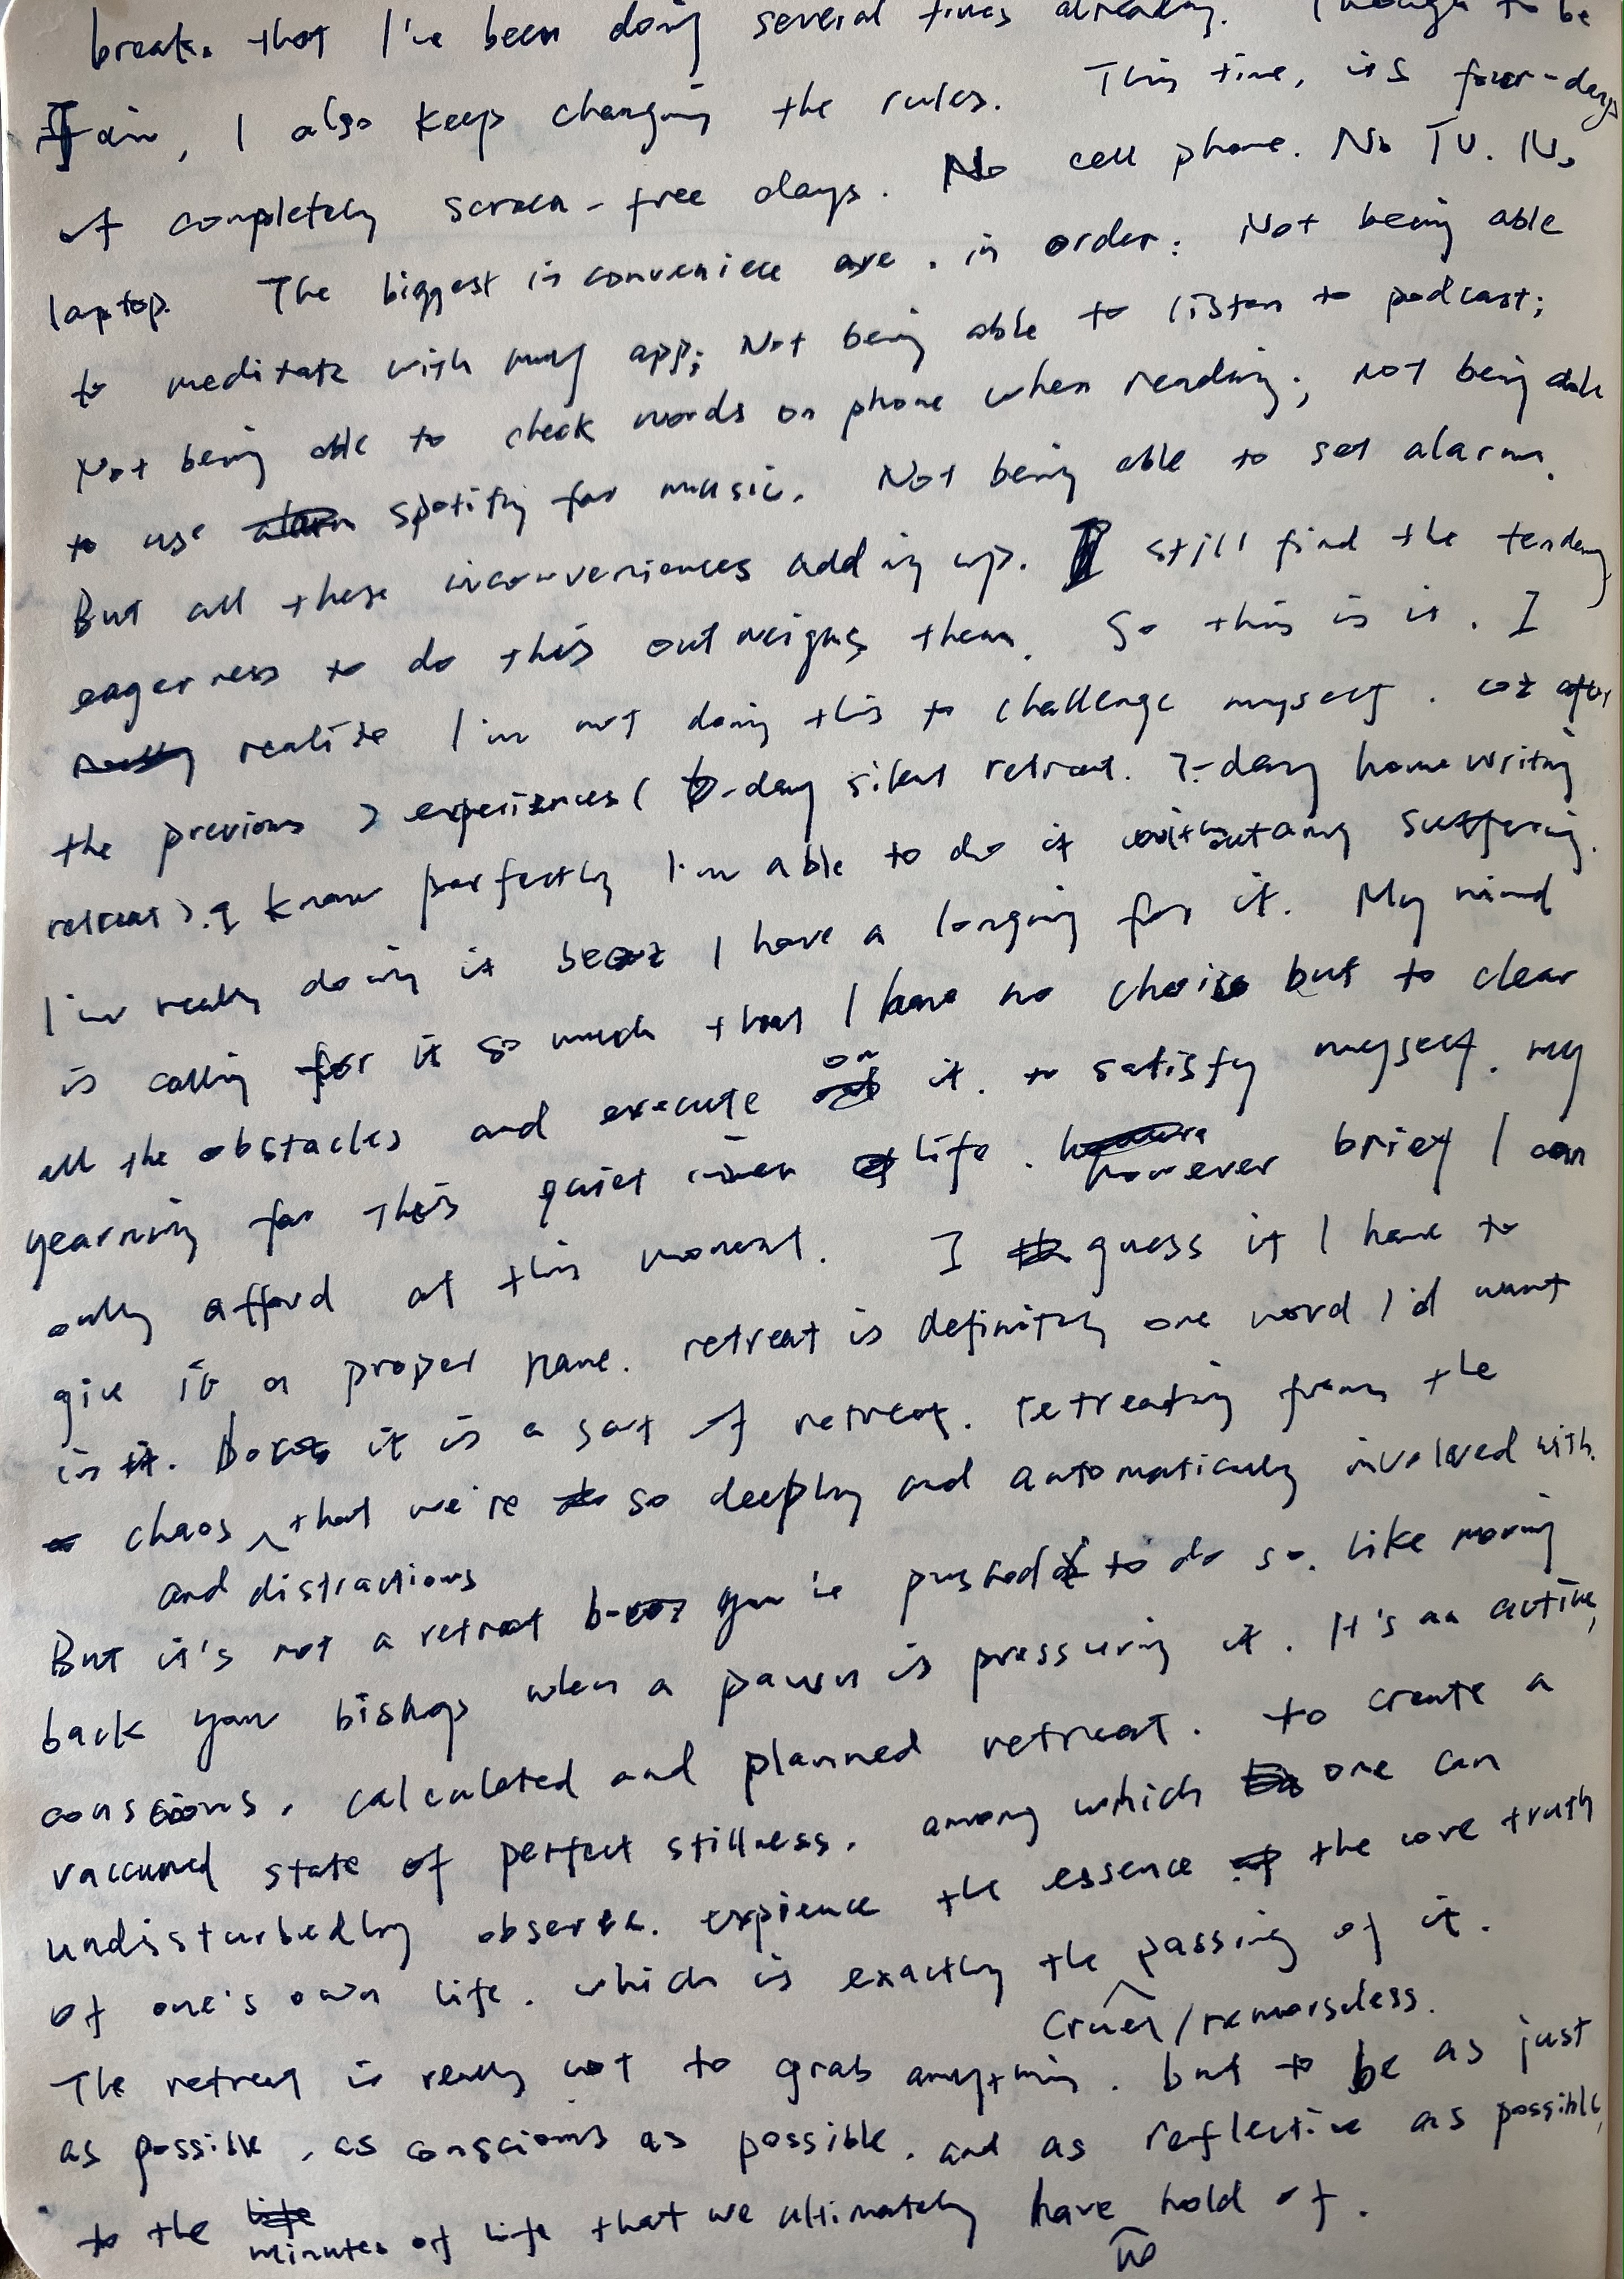 break. that I've been doing several times already. Though to be
fair, I also keep changing the rules. This time, it's four-days
of completely screen-free days. No cell phone. No TV. No
laptop. The biggest inconveniece are, in order: Not being able
to meditate with my app; Not being able to listen to podcast;
Not being able to check words on phone when reading; not being able
to use alarm spotify for music. Not being able to set alarm.
But all these inconveniences adding up. I still find the tendency
eagerness to do this outweighs them. So this is it. I
really realize I'm not doing this to challenge myself. coz after
the previous 2 experiences ( -day silent retreat. 7-day home writing
retreat). I know perfectly I'm able to do it without any suffering.
I'm really doing it becoz I have a longing for it. My mind
is calling for it so much that I have no choise but to clear
all the obstacles and execute on it. to satisfy myself. my
yearning for this quiet inner of life. however brief I can
only afford at this moment. I guess if I have to
give it a proper name. retreat is definitely one word I'd want
in it. becoz it is a sort of retreat. retreating from the
chaos that we're so deeply and automatically involved with.
and distractions
But it's not a retreat becoz you're pushed to do so. like moving
back your bishop when a pawn is pressuring it. It's an active,
conscious, calculated and planned retreat. to create a
vaccumed state of perfect stillness. among which one can
undisturbedly observe. expience the essence of the core truth
of one's own life. which is exactly the passing of it.
cruel/remorseless.
The retreat is really not to grab anything. but to be as just
as possible, as conscious as possible. and as reflective as possible,
to the life
minutes of life that we ultimately have hold of.
no